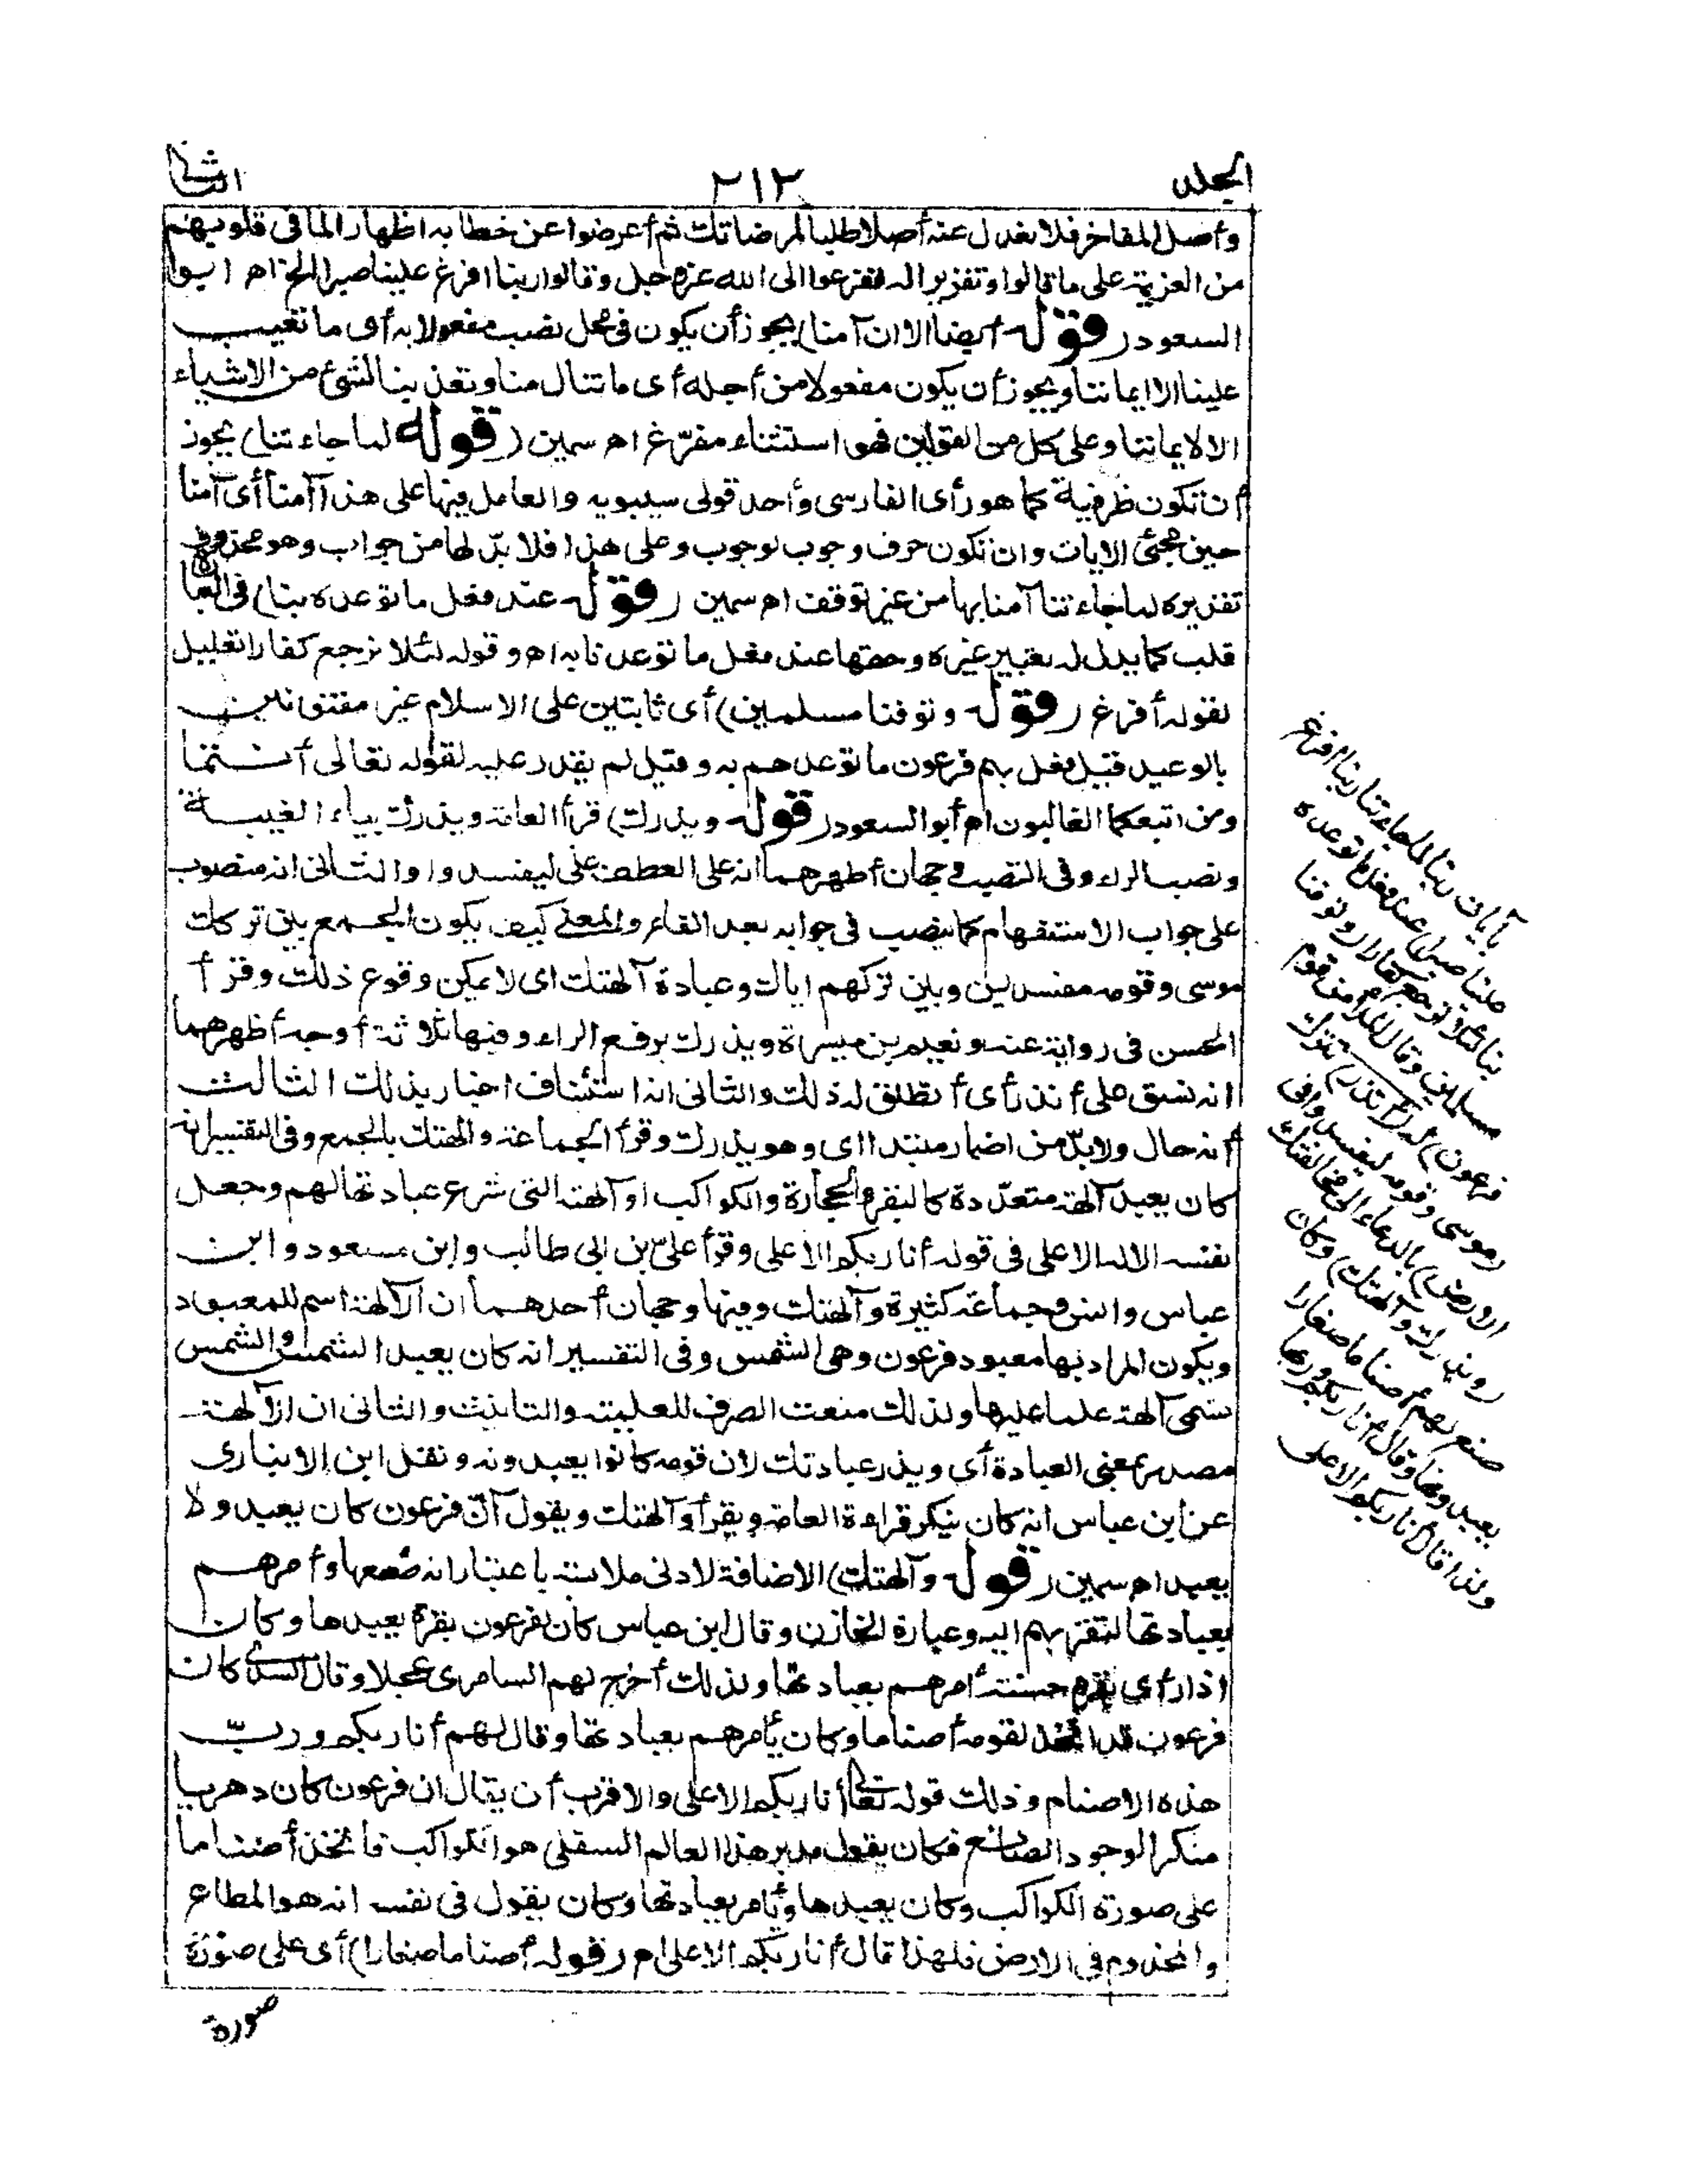 المجلد
٢١٢
الثانى
وأصل المفاخر فلا نعدل عنه أصلا طلبا لمرضاتك ثم أعرضوا عن خطابه اظهارا لما فى قلوبهم
من العزيمة على ما قالوا وتقريرا له ففزعوا الى الله عز وجل وقالوا ربنا افرغ علينا صبرا الخ اه ابوا
السعود (قوله أيضا الا ان آمنا) يجوز أن يكون فى محل نصب مفعولا به أى ما تعيب
علينا الا ايماننا ويجوز أن يكون مفعولا من أجله أى ما تنال منا وتعذبنا لشئ من الاشياء
الا لايماننا وعلى كل من القولين فهو استثناء مفرّغ اه سمين (قوله لما جاءتنا) يجوز
أن تكون ظرفية كما هو رأى الفارسى وأحد قولى سيبويه والعامل فيها على هذا آمنا أى آمنا
حين مجئ الايات وان تكون حرف وجوب لوجوب وعلى هذا فلا بدّ لها من جواب وهو محذوف
تقديره لما جاءتنا آمنا بها من غير توقف اه سمين (قوله عند فعل ما توعده بنا) فى العبارة
قلب كما يدل له تعبير غيره وحقها عند فعل ما توعدنا به اه وقوله لئلا نرجع كفارا تعليل
لقوله أفرغ (قوله وتوفنا مسلمين) أى ثابتين على الاسلام غير مفتونين
بالوعيد قيل فعل بهم فرعون ما توعدهم به وقيل لم يقدر عليه لقوله تعالى أنتما
ومن اتبعكما الغالبون اه أبو السعود (قوله ويذرك) قرأ العامة ويذرك بياء الغيبة
ونصب الراء وفى النصب وجهان أظهرهما انه على العطف على ليفسدوا والثانى انه منصوب
على جواب الاستفهام كما ينصب فى جوابه بعد الفاء والمعنى كيف يكون الجمع بين تركك
موسى وقومه مفسدين وبين تركهم اياك وعبادة آلهتك اى لا يمكن وقوع ذلك وقرأ
الحسن فى رواية عنه ونعيم بن ميسرة ويذرك برفع الراء وفيها ثلاثة أوجه أظهرهما
انه نسق على أتذر أى أتطلق له ذلك والثانى انه استئناف اخبار بذلك الثالث
أنه حال ولا بدّ من اضمار مبتدا اى وهو يذرك وقرأ الجماعة وآلهتك بالجمع وفى التفسير انه
كان يعبد آلهة متعدّدة كالبقر والحجارة والكواكب او آلهته التى شرع عبادتها لهم وجعل
نفسه الاله الاعلى فى قوله أنا ربكم الاعلى وقرأ علىّ بن ابى طالب وابن مسعود وابن
عباس وانس وجماعة كثيرة وآلهتك وفيها وجهان أحدهما ان الآلهة اسم للمعبود
ويكون المراد بها معبود فرعون وهى الشمس وفى التفسير انه كان يعبد الشمس والشمس
تسمى آلهة علما عليها ولذلك منعت الصرف للعلمية والتانيث والثانى ان الآلهة
مصدر بمعنى العبادة أى ويذر عبادتك لان قومه كانوا يعبدونه ونقل ابن الانبارى
عن ابن عباس انه كان ينكر قراءة العامة ويقرأ وآلهتك ويقول انّ فرعون كان يعبد ولا
يعبد اه سمين (قوله وآلهتك) الاضافة لادنى ملابسة باعتبار انه صنعها وأمرهم
بعبادتها لتقربهم اليه وعبارة الخازن وقال ابن عباس كان لفرعون بقرة يعبدها وكان
اذا رأى بقرة حسنة أمرهم بعبادتها ولذلك أخرج لهم السامرى عجلا وقال السدى كان
فرعون قد اتخذ لقومه أصناما وكان يأمرهم بعبادتها وقال لهم أنا ربكم وربّ
هذه الاصنام وذلك قوله تعالى أنا ربكم الاعلى والاقرب أن يقال ان فرعون كان دهريا
منكرا لوجود الصانع فكان يقول مدبر هذا العالم السفلى هو الكواكب فاتخذ أصناما
على صورة الكواكب وكان يعبدها ويأمر بعبادتها وكان يقول فى نفسه انه هو المطاع
والمخدوم فى الارض فلهذا قال أنا ربكم الاعلى اه (قوله أصناما صغارا) أى على صورة
صورة
بآيات ربنا لما جاءتنا ربنا افرغ
علينا صبرا) عند فعل ما توعده
بنا لئلا نرجع كفارا (وتوفنا
مسلمين وقال الملأ من قوم
فرعون) له (أتذر) تترك
(موسى وقومه ليفسدوا فى
الارض) بالدعاء الى مخالفتك
(ويذرك وآلهتك) وكان
صنع لهم أصناما صغارا
يعبدونها وقال أنا ربكم وربها
ولذا قال أنا ربكم الاعلى